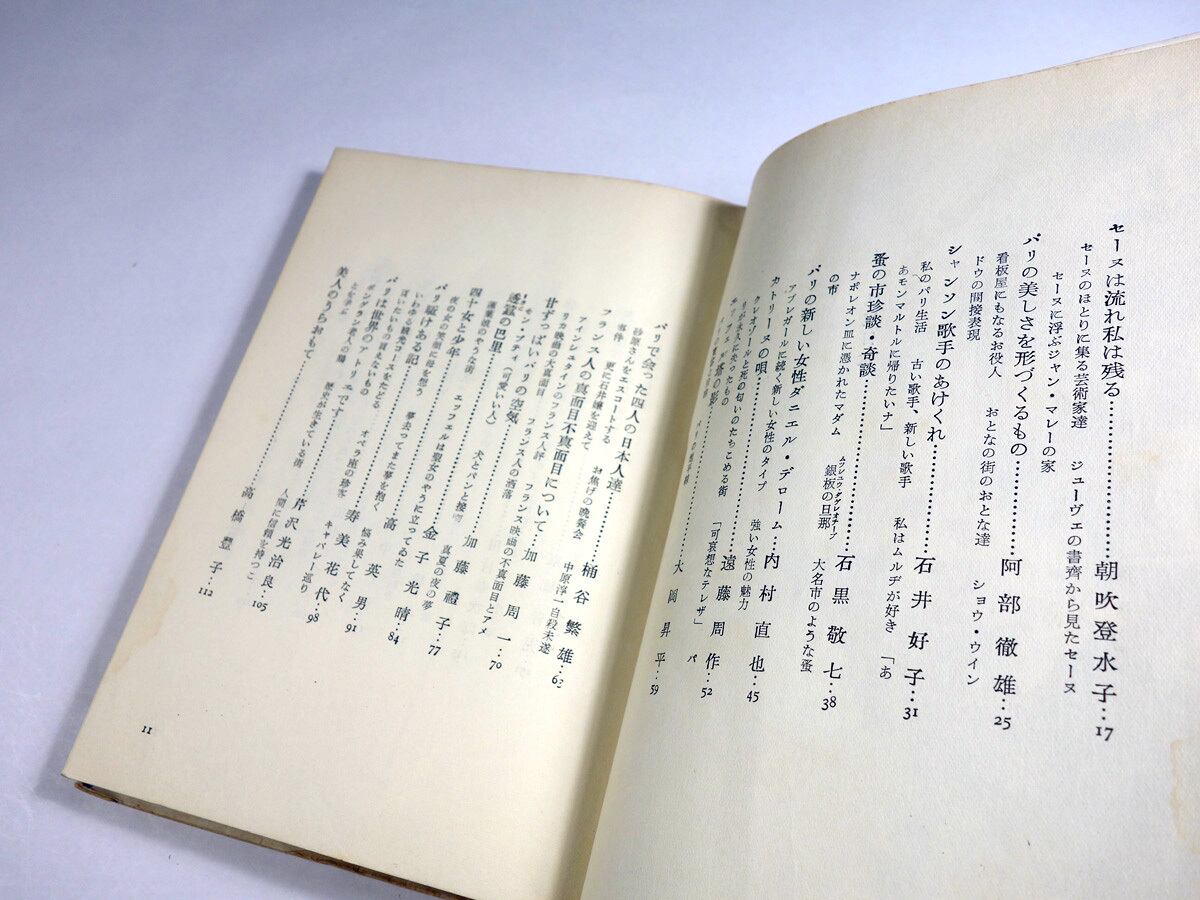 セーヌは流れ私は残る…………朝吹登水子…17
セーヌのほとりに集る芸術家達　ジューヴェの書齊から見たセーヌ
セーヌに浮ぶジャン・マレーの家
パリの美しさを形づくるもの…………阿部徹雄…25
看板屋にもなるお役人　おとなの街のおとな達　ショウ・ウイン
ドウの間接表現
シャンソン歌手のあけくれ…………石井好子…31
私のパリ生活　古い歌手、新しい歌手　私はムルヂが好き　「あ
あモンマルトルに帰りたいナ」
蚤の市珍談・奇談…………石黒敬七…38
ナポレオン皿に憑かれたマダム　銀板の旦那　大名市のような蚤
の市
パリの新しい女性ダニエル・デローム…内村直也…45
アプレガールに続く新しい女性のタイプ　強い女性の魅力
カトリーヌの唄…………遠藤周作…52
クレオゾールと死の匂いのたちこめる街　「可哀想なテレザ」　パ
リが永久に失ったもの
塔の影…………大岡昇平…59
パリで会った四人の日本人達…………桶谷繁雄…63
砂原さんをエスコートする　お焦げの晩餐会　中原淳一自殺未遂
事件　更に石井嬢を迎えて
フランス人の真面目不真面目について…加藤周一…70
アインシュタインのフランス人評　フランス映画の不真面目とアメ
リカ映画の大真面目　フランス人の洒落
甘ずっぱいパリの空気…………加藤禮子…77
モン・プティ（可愛い人）　犬とパンと接吻　真夏の夜の夢
巴里…………金子光晴…84
蓮華頃のやうな街　エッフェルは聖女のやうに立ってるた
四十女と少年
夜の女の笑顔に母を想う　夢去ってまた夢を抱く
パリ駈けある記…………高英男…91
いわゆる観光コースをたどる　悩み果てしなく
買いたいもの買えないもの　オペラ座の珍客
パリは世界のアトリエです…寿美花代…98
キャバレー巡り
芹沢光治良…105
歴史が生きている街　人間に信頼を持つこ
美人のうらおもて…………高橋豊子…112
11